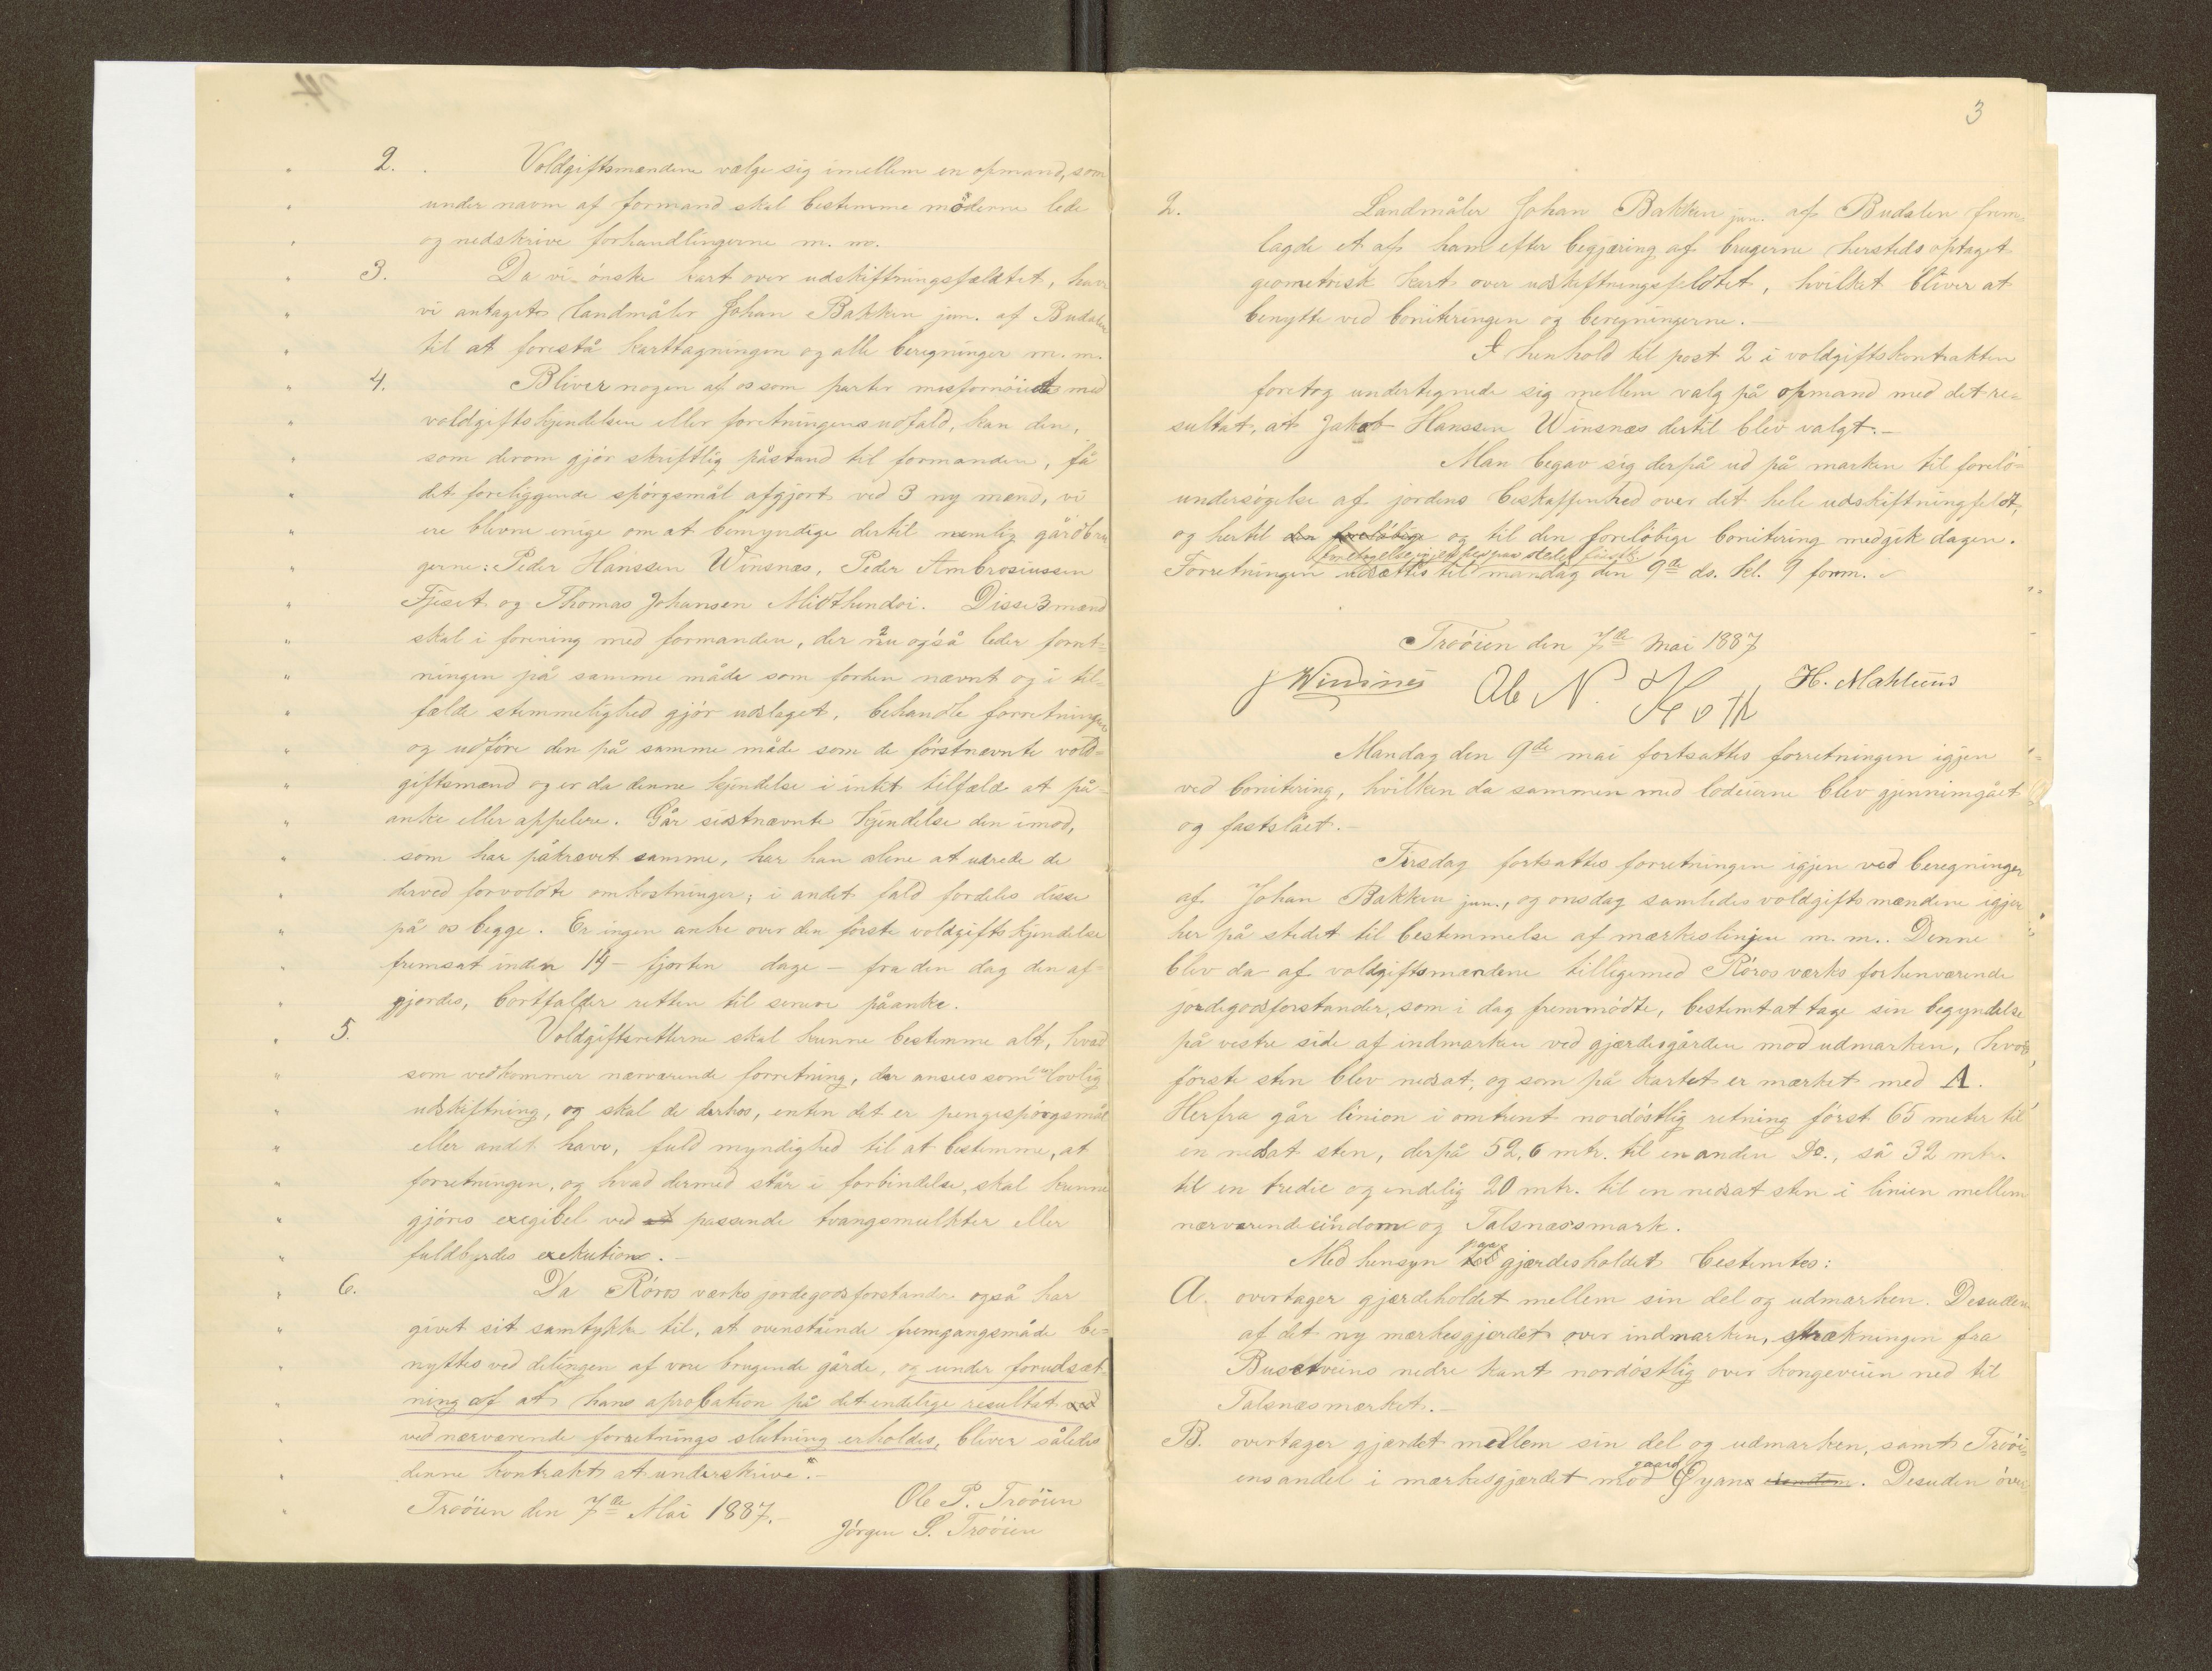 2. Voldgiftsmændene vælge sig imellem en opmand, som
under navn af formand skal bestemme möderne lede
og nedskrive forhandlingerne m. m.
3. Da vi ønske kart over udskiftningsfeldtet, have
vi antaget landmåler Johan Bakken jun. af Budalen
til at forestå karttagningen og alle beregninger m. m.
4. Bliver nogen af os som parter misfornöiet med
voldgiftskjendelsen eller forretningens udfald, kan den,
som derom gjör skriftlig påstand til formanden, få
det foreliggende spörgsmål afgjort ved 3 ny mænd, vi
ere blevne enige om at bemyndige dertil nemlig gårdbru
gerne: Peder Hanssen Winsnes, Peder Ambrosiussen
Fjeset og Thomas Johansen Midthundoi. Disse 3 mænd
skal i forening med formanden, der nu også leder forret=
ningen på samme måde som forhen nævnt og i til=
fælde stemmelighed gjör udslaget, behandle forretningen
og udföre den på samme måde som de förstnævnte vold=
giftsmænd og er da denne kjendelse i intet tilfælde at på=
anke eller appelere. Går sidstnævnte kjendelse den imod,
som har påkrævet samme, har han alene at udrede de
derved forvoldte omkostninger; i andet fald fordeles disse
på os begge. Er ingen anke over den förste voldgiftskjendelse
fremsat inden 14 – fjorten dage – fra den dag den af=
gjordes, bortfalder retten til senere påanke.
5. Voldgiftsretterne skal kunne bestemme alt, hvad
som vedkommer nærværende forretning, der ansees som lovlig
udskiftning, og skal de derhos, enten det er pengespörgsmål
eller andet have, fuld myndighed til at bestemme, at
forretningen, og hvad dermed står i forbindelse, skal kunne
gjöres exegibel ved passende tvangsmulkter eller
fuldbyrdes exekution. –
6. Da Röros værks jordegodsforstander også har
givet sit samtykke til, at ovenstående fremgangsmåde be=
nyttes ved delingen af vore brugende gårde, og under forudsæt=
ning af at hans aprobation på det endelige resultat
ved nærværende forretnings slutning erholdes, bliver således
denne kontrakt at underskrive". –
Troöien den 7de Mai 1887. –
Ole P. Troöien
Jörgen S. Troöien
3
2. Landmåler Johan Bakken jun. af Budalen frem=
lagde et af ham efter begjæring af brugerne hersteds optaget
geometrisk kart over udskiftningsfeldtet, hvilket bliver at
benytte ved boniteringen og beregningerne. –
I henhold til post 2 i voldgiftskontrakten
foretog undertegnede sig mellem valg på opmand med det re=
sultat, at Jakob Hanssen Winsnæs dertil blev valgt. –
Man begav sig derpå ud på marken til forelö=
undersögelse af jordens beskaffenhed over det hele udskiftningsfeldt,
og hertil den foreløbige og til den foreløbige bonitering medgik dagen.
Forretningen udsættes til mandag den 9de ds. kl. 9 form.
Troöien den 7de Mai 1887
J Winsnes Ole N. Koth H. Mahlum
Mandag den 9de mai fortsattes forretningen igjen
ved bonitering, hvilken da sammen med lodeierne blev gjennemgået
og fastslået. –
Tirsdag fortsattes forretningen igjen ved beregninger
af Johan Bakken jun., og onsdag samledes voldgiftsmændene igjen
her på stedet til bestemmelse af mærkeslinjen m. m.. Denne
blev da af voldgiftsmændene tilligemed Röros værks forhenværende
jordegodsforstander, som i dag fremmödte, bestemt at tage sin begyndelse
på vestre side af indmarken ved gjærdesgården mod udmarken, hvor
förste sten blev nedsat, og som på kartet er mærket med A.
Herfra går linien i omtrent nordöstlig retning först 65 meter til
en nedsat sten, derpå 52,6 mtr. til en anden Do., så 32 mtr.
til en tredie og endelig 20 mtr. til en nedsat sten i linien mellem
nærværende eiendom og Talsnæssmark.
Med hensyn paa gjærdesholdet bestemtes:
A. overtager gjærdeholdet mellem sin del og udmarken. Desuden
af det ny mærkesgjerdet over indmarken, strækningen fra
Busetveiens nedre kant nordöstlig over kongeveien ned til
Talsnæsmærket. –
B. overtager gjærdet mellem sin del og udmarken, samt Troöi=
ens andel i mærkesgjærdet mod gaard Öyan. Desuden över